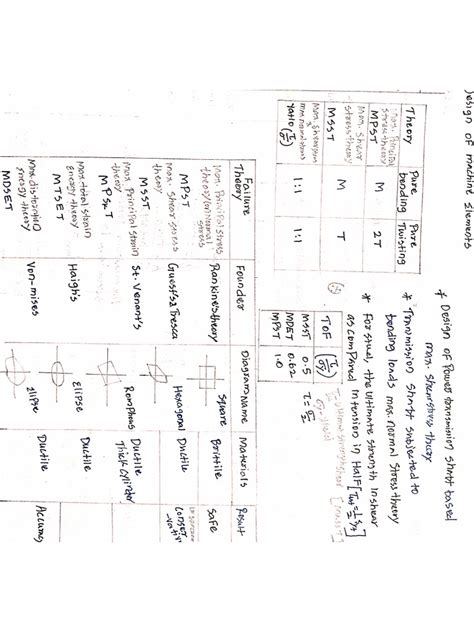 Design of machine Elements
Theory | Pure bending | Pure Twisting
Max. Principal stress theory MPST | M | 2T
Max. Shear stress theory MSST | M | T
Max Shear
max normal stress
ratio (τ/σ) | 1:1 | 1:1
* Design of Power transmission shaft based
max. shear stress theory
* Transmission shaft subjected to
bending loads max. normal stress theory
* For stual, the ultimate strength in shear
as compared in tension in Half
TOF | (τ/σy)
MSST | 0.5
MDET | 0.62
MPST | 1.0
Failure Theory | Founder | Diagram | Name | Materials | Result
Max. Principal Stress theory/or normal stress MPST | Rankines theory | Square | Brittile | Safe
Max. shear stress theory MSST | Guest's & Tresca | Hexagonal | Ductile
Max Principal Strain MPSnT | St. Venant's | Rombhous | Ductile Thick Cylinder
Max. total strain energy theory MTSET | Haigh's | Elipse | Ductile
Max. distortion energy theory MDSET | Von-mises | Ellipse | Ductile | Accurag